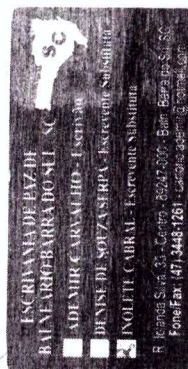 SC
ESCRIVANIA DE PAZ DE
BALNEÁRIO BARRA DO SUL - SC
ADEMIR CARVALHO - Escrivão
DENISE DE SOUZA SERPA - Escrevente Substituta
IVOLETE CABRAL - Escrevente Substituta
R. Iolanda Silva, 33 - Centro - 89247-000 - Baln. Barra do Sul - SC
Fone/Fax: (47) 3448-1261